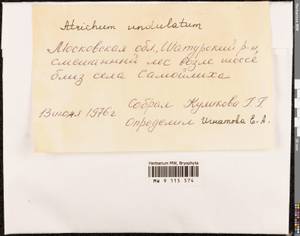 Atrichum undulatum
Московская обл, Шатурский р-н,
смешанный лес возле шоссе
близ села Самойлиха
13 июля 1976 г Собрал Куликова Г.Г
Определил Игнатова Е.А.
Herbarium MW, Bryophyta
MW 9 113 574